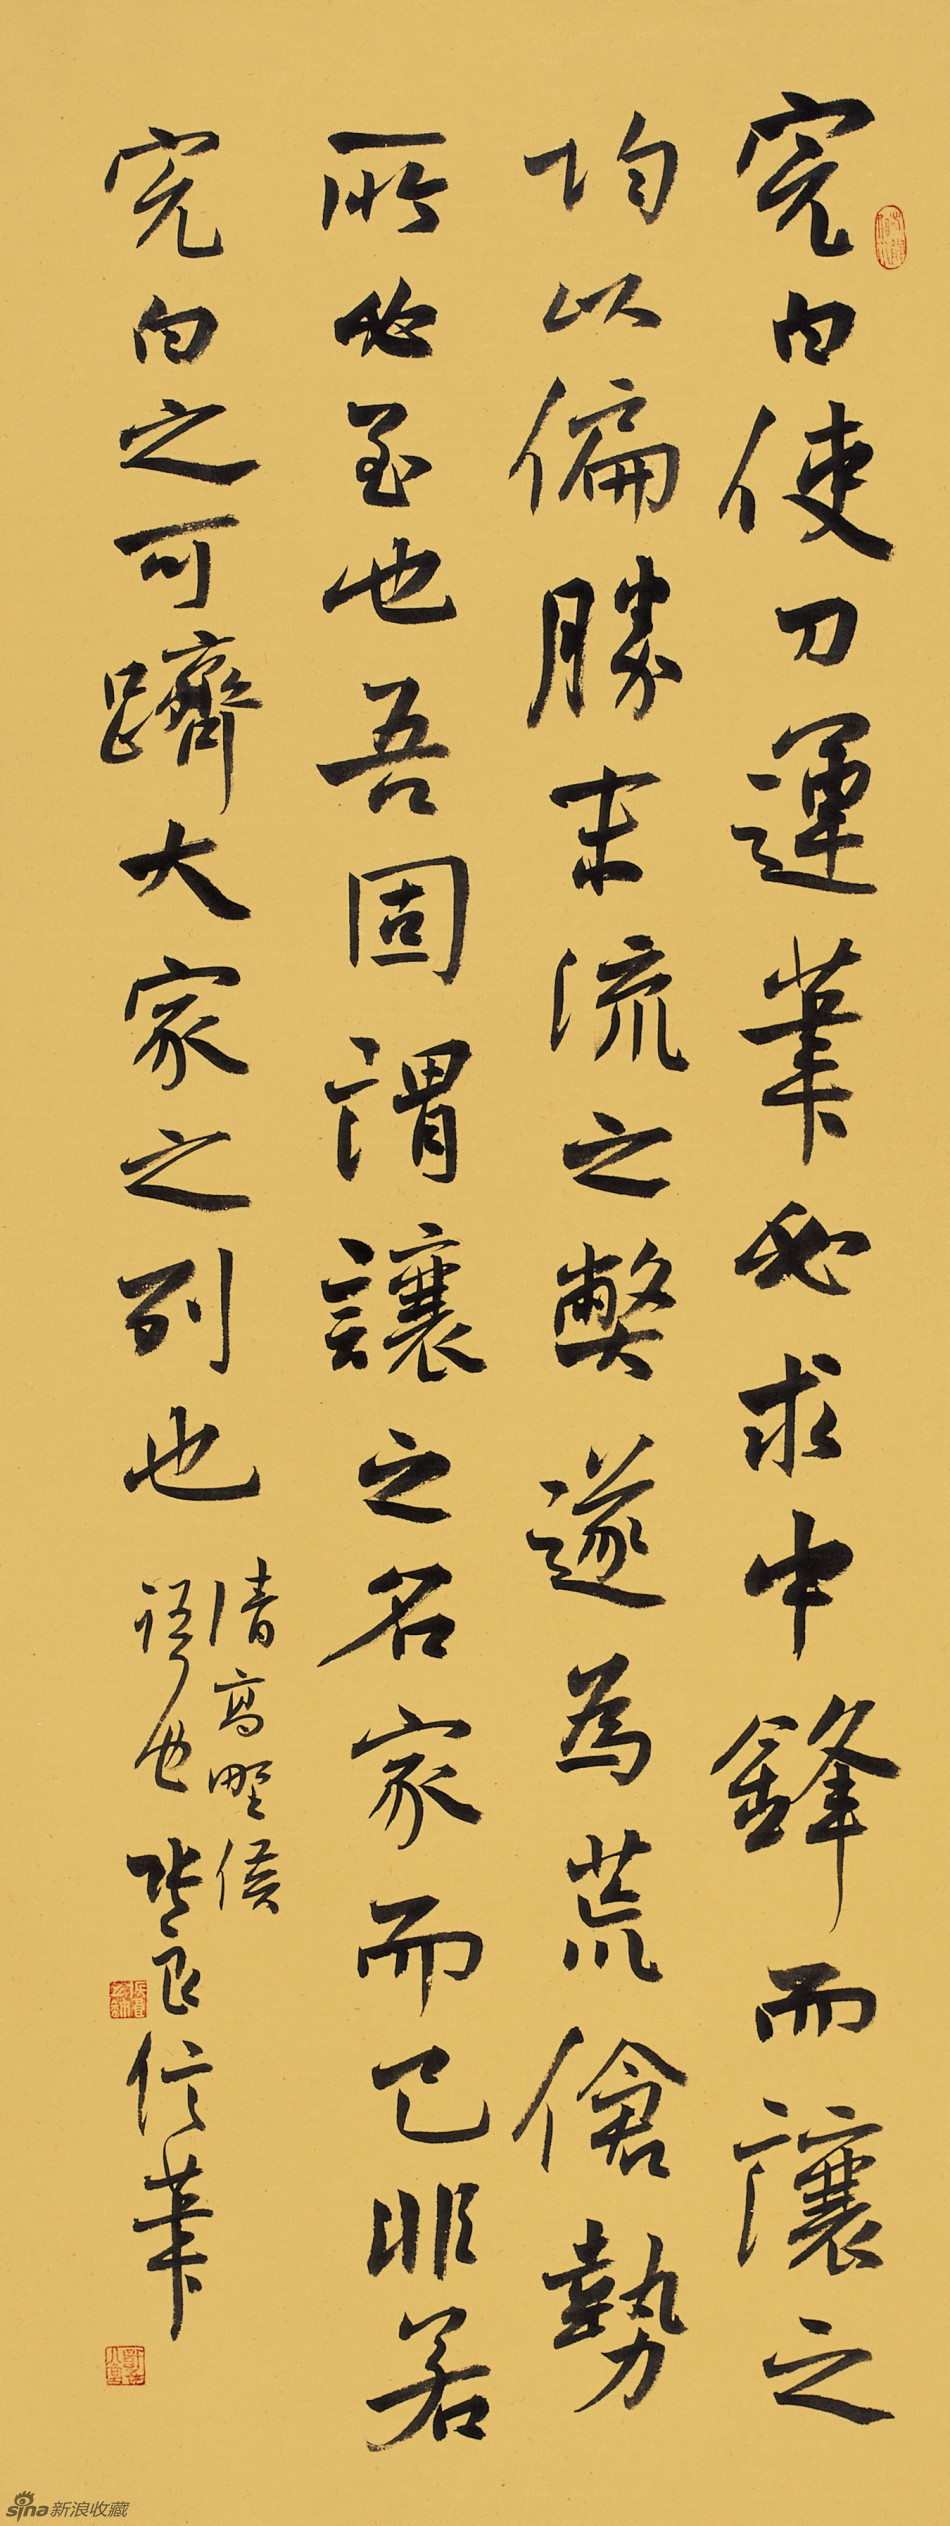 完白使刀運筆必求中鋒而讓之
均以偏勝末流之弊遂為荒傖勢
所必至也吾固謂讓之名家而已非若
完白之可躋大家之列也
清高野侯
語也 張良信筆
sina新浪收藏